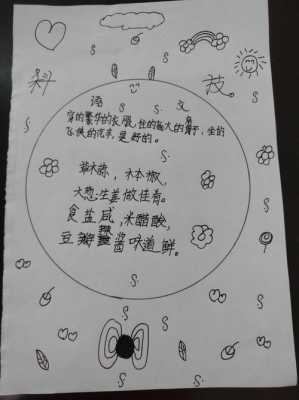 科 技
语 文
穿的繁华的衣服，住的高大的房子，坐的
飞快的汽车，是野的。
草木棕，木本椒，
大葱生姜做佳肴。
食盐咸，米醋酸，
豆瓣辣酱味道鲜。